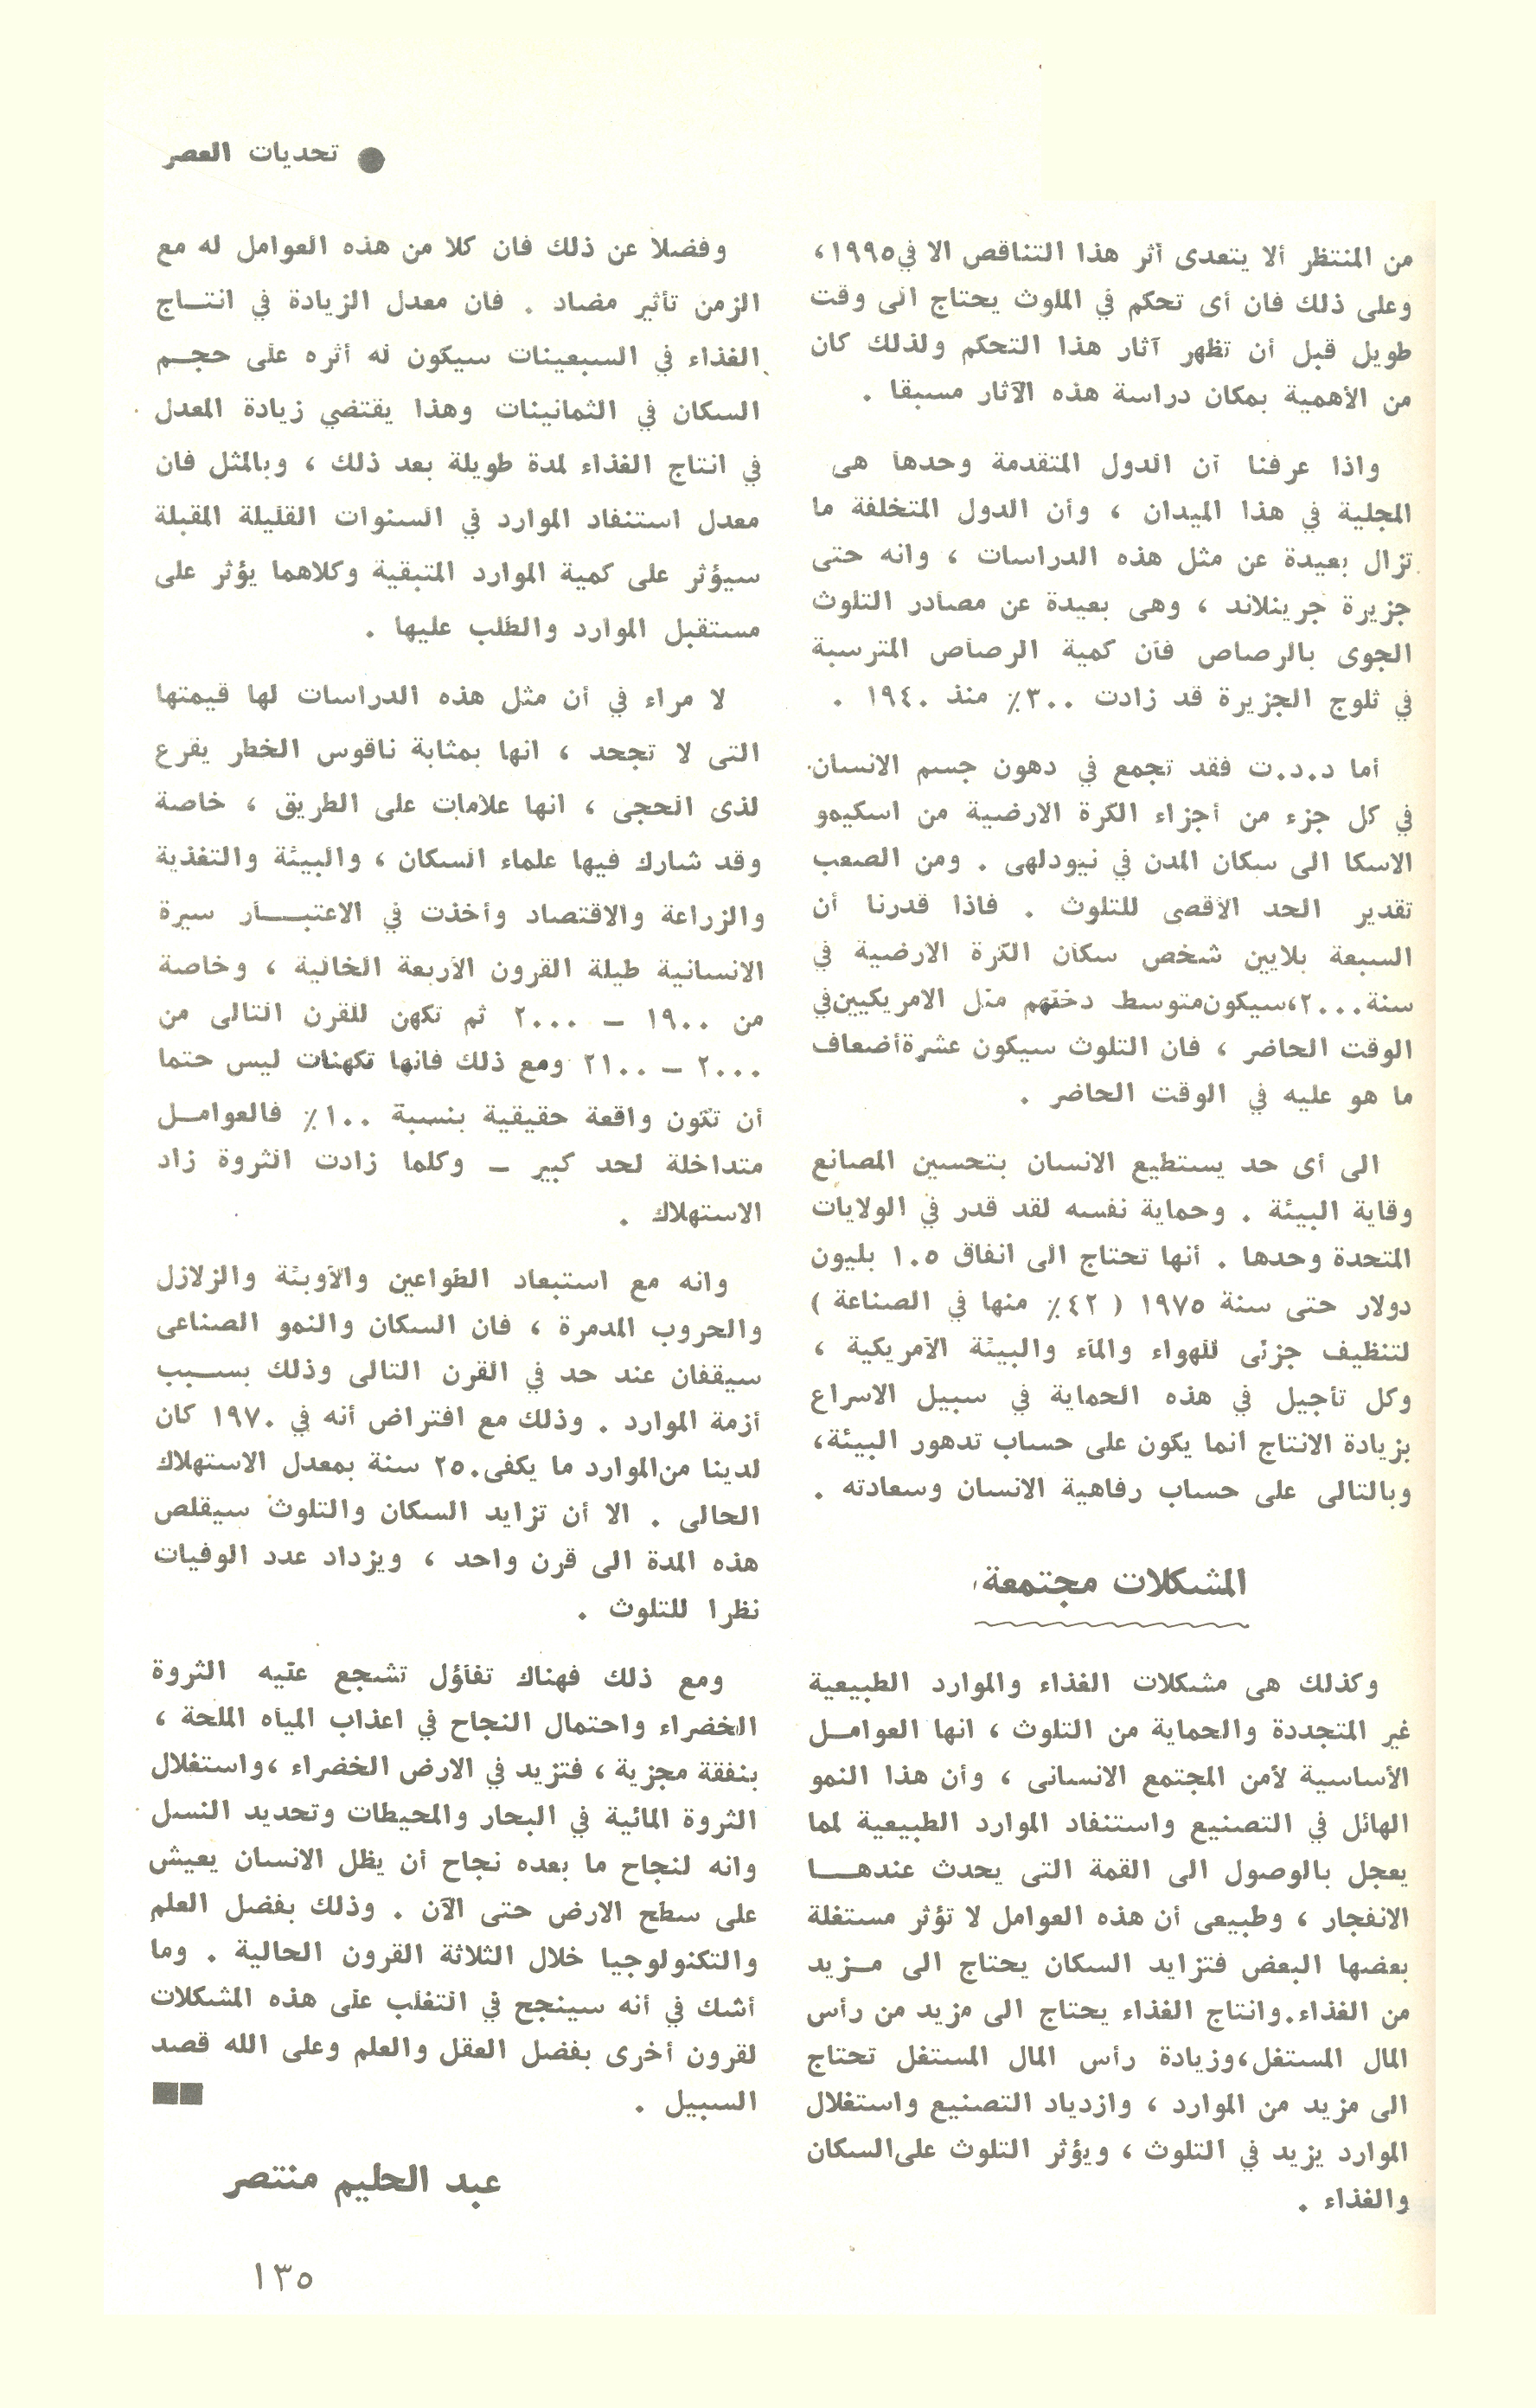 ● تحديات العصر
من المنتظر ألا يتعدى أثر هذا التناقص الا في ١٩٩٥،
وعلى ذلك فان أى تحكم في الملوث يحتاج الى وقت
طويل قبل أن تظهر آثار هذا التحكم ولذلك كان
من الأهمية بمكان دراسة هذه الآثار مسبقا .
واذا عرفنا أن الدول المتقدمة وحدها هى
المجلية في هذا الميدان ، وأن الدول المتخلفة ما
تزال بعيدة عن مثل هذه الدراسات ، وانه حتى
جزيرة جرينلاند ، وهى بعيدة عن مصادر التلوث
الجوى بالرصاص فان كمية الرصاص المترسبة
في ثلوج الجزيرة قد زادت ٣٠٠٪ منذ ١٩٤٠ .
أما د.د.ت فقد تجمع في دهون جسم الانسان
في كل جزء من أجزاء الكرة الارضية من اسكيمو
الاسكا الى سكان المدن في نيودلهى . ومن الصعب
تقدير الحد الأقصى للتلوث . فاذا قدرنا أن
السبعة بلايين شخص سكان الكرة الارضية في
سنة ٢٠٠٠، سيكون متوسط دخلهم مثل الامريكيين في
الوقت الحاضر ، فان التلوث سيكون عشرة أضعاف
ما هو عليه في الوقت الحاضر .
الى أى حد يستطيع الانسان بتحسين المصانع
وقاية البيئة . وحماية نفسه لقد قدر في الولايات
المتحدة وحدها . أنها تحتاج الى انفاق ١٠٥ بليون
دولار حتى سنة ١٩٧٥ ( ٤٢٪ منها في الصناعة )
لتنظيف جزئى للهواء والماء والبيئة الأمريكية ،
وكل تأجيل في هذه الحماية في سبيل الاسراع
بزيادة الانتاج انما يكون على حساب تدهور البيئة،
وبالتالى على حساب رفاهية الانسان وسعادته .
المشكلات مجتمعة
وكذلك هى مشكلات الغذاء والموارد الطبيعية
غير المتجددة والحماية من التلوث ، انها العوامـل
الأساسية لأمن المجتمع الانسانى ، وأن هذا النمو
الهائل في التصنيع واستنفاد الموارد الطبيعية لما
يعجل بالوصول الى القمة التى يحدث عندهـــا
الانفجار ، وطبيعى أن هذه العوامل لا تؤثر مستغلة
بعضها البعض فتزايد السكان يحتاج الى مـزيد
من الغذاء.وانتاج الغذاء يحتاج الى مزيد من رأس
المال المستغل،وزيادة رأس المال المستغل تحتاج
الى مزيد من الموارد ، وازدياد التصنيع واستغلال
الموارد يزيد في التلوث ، ويؤثر التلوث على السكان
والغذاء .
وفضلا عن ذلك فان كلا من هذه العوامل له مع
الزمن تأثير مضاد . فان معدل الزيادة في انتــاج
الغذاء في السبعينات سيكون له أثره على حجـم
السكان في الثمانينات وهذا يقتضي زيادة المعدل
في انتاج الغذاء لمدة طويلة بعد ذلك ، وبالمثل فان
معدل استنفاد الموارد في السنوات القليلة المقبلة
سيؤثر على كمية الموارد المتبقية وكلاهما يؤثر على
مستقبل الموارد والطلب عليها .
لا مراء في أن مثل هذه الدراسات لها قيمتها
التى لا تجحد ، انها بمثابة ناقوس الخطر يقرع
لذى الحجى ، انها علامات على الطريق ، خاصة
وقد شارك فيها علماء السكان ، والبيئة والتغذية
والزراعة والاقتصاد وأخذت في الاعتبـــار سيرة
الانسانية طيلة القرون الأربعة الخالية ، وخاصة
من ١٩٠٠ – ٢٠٠٠ ثم تكهن للقرن التالى من
٢٠٠٠ – ٢١٠٠ ومع ذلك فانها تكهنات ليس حتما
أن تكون واقعة حقيقية بنسبة ١٠٠٪ فالعوامـل
متداخلة لحد كبير – وكلما زادت الثروة زاد
الاستهلاك .
وانه مع استبعاد الطواعين والأوبئة والزلازل
والحروب المدمرة ، فان السكان والنمو الصناعى
سيقفان عند حد في القرن التالى وذلك بســبب
أزمة الموارد . وذلك مع افتراض أنه في ١٩٧٠ كان
لدينا من الموارد ما يكفى ٢٥٠ سنة بمعدل الاستهلاك
الحالى . الا أن تزايد السكان والتلوث سيقلص
هذه المدة الى قرن واحد ، ويزداد عدد الوفيات
نظرا للتلوث .
ومع ذلك فهناك تفاؤل تشجع عليه الثروة
الخضراء واحتمال النجاح في اعذاب المياه الملحة ،
بنفقة مجزية ، فتزيد في الارض الخضراء ،واستغلال
الثروة المائية في البحار والمحيطات وتحديد النسل
وانه لنجاح ما بعده نجاح أن يظل الانسان يعيش
على سطح الارض حتى الآن . وذلك بفضل العلم
والتكنولوجيا خلال الثلاثة القرون الحالية . وما
أشك في أنه سينجح في التغلب على هذه المشكلات
لقرون أخرى بفضل العقل والعلم وعلى الله قصد
السبيل .
عبد الحليم منتصر
١٣٥